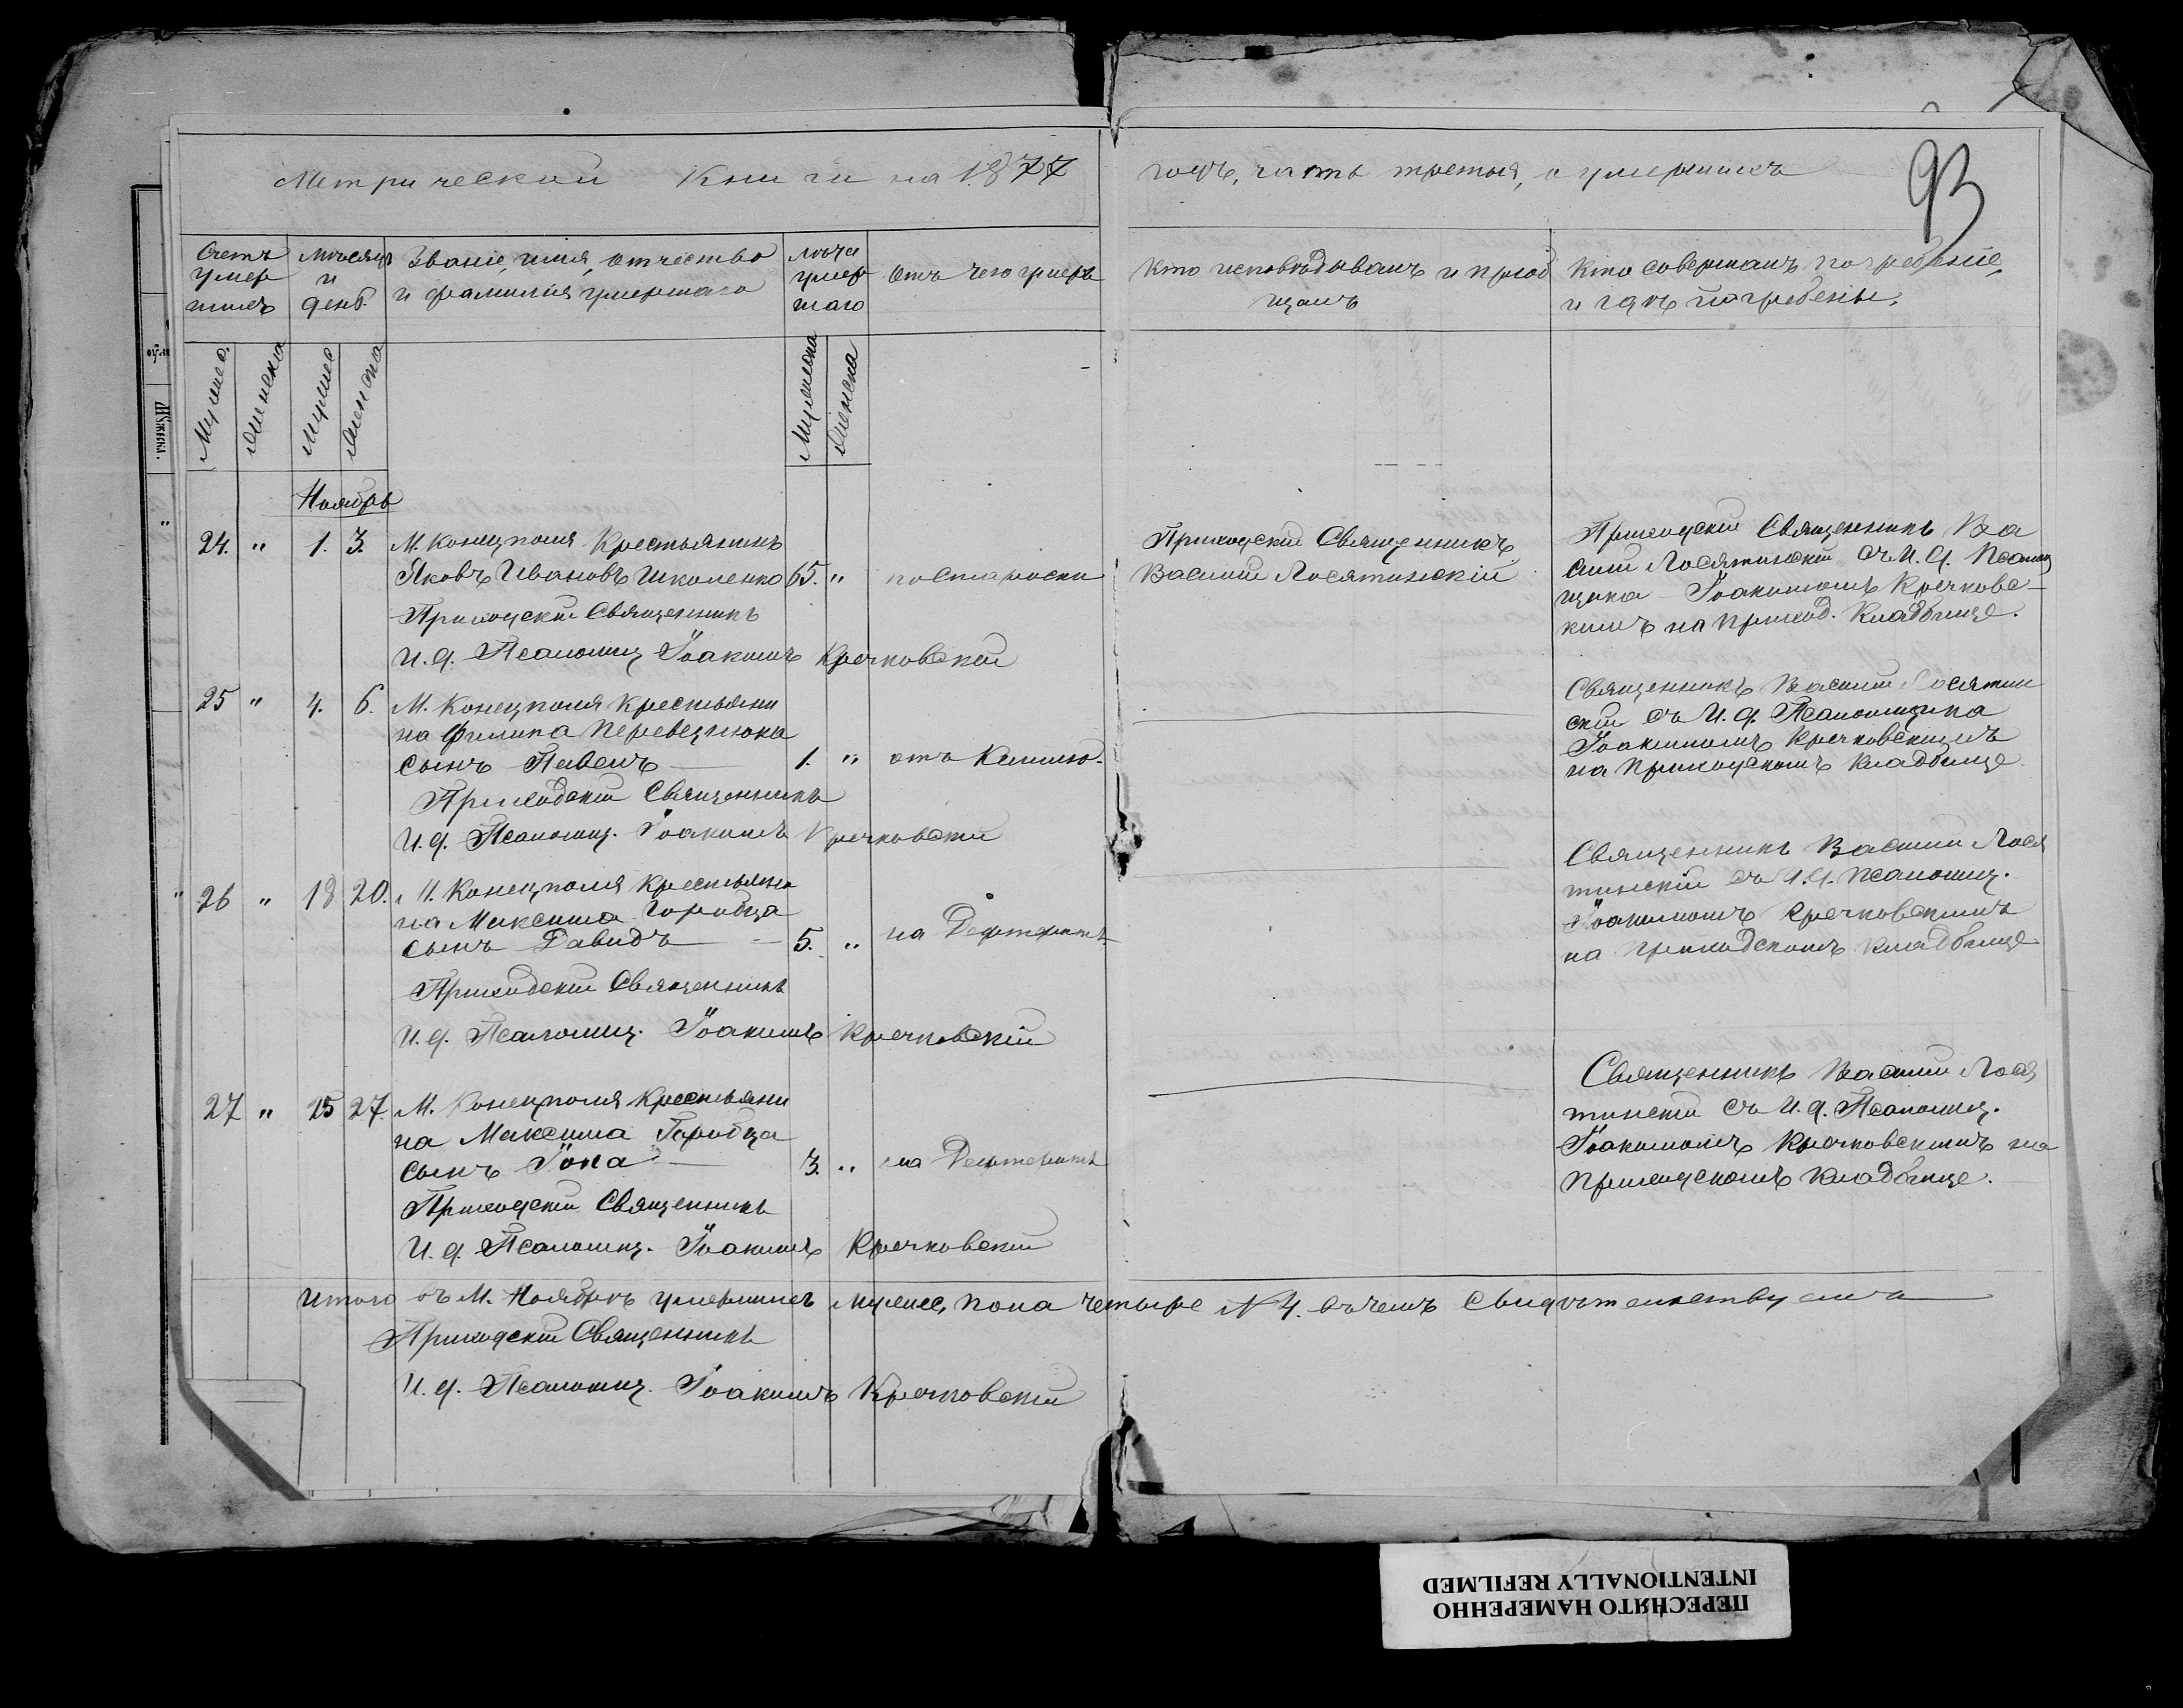 Метрической Книги на 1877
годъ, часть третья, о умершихъ
93
Счетъ умер шихъ
Мѣсяцъ и день.
Званіе, имя, отчество и фамилія умершаго
Лѣта умер шаго
Отъ чего умеръ
Кто исповѣдывалъ и пріоб щалъ
Кто совершалъ погребеніе, и гдѣ погребены.
Мужес.
Женска
Мужес
Женска
Мужеска
Женска
Ноябрь
24. " 1. 3. М. Конецполя Крестьянинъ
Яковъ Ивановъ Школенко 65. " по старости
Приходскій Священникъ
И. д. Псаломщ Іоакимъ Кречковскій
Приходскій Священникъ
Василій Лосятинскій
Приходскій Священникъ Ва
силій Лосятинскій съ И. д. Псалом
щика Іоакимомъ Кречковс-
кимъ на приход. Кладбище.
25 " 4. 6. М. Конецполя Крестьяни
на Филипа Перевезнюка
сынъ Павелъ 1. " отъ Кашлю.
Приходскій Священникъ
И. д. Псаломщ. Іоакимъ Кречковскій
Священникъ Василій Лосятин
скій съ И. д. Псаломщика
Іоакимомъ Кречковскимъ
на Приходскомъ Кладбище.
26 " 18 20. М. Конецполя Крестьяни
на Максима Горобца
сынъ Давидъ 5. " на Дефтеритъ
Приходскій Священникъ
И. д. Псаломщ. Іоакимъ Кречковскій
Священникъ Василій Лося
тинскій съ И. д. Псаломщ.
Іоакимомъ Кречковскимъ
на Приходскомъ Кладбище
27 " 25 27. М. Конецполя Крестьяни
на Максима Горобца
сынъ Іона 3. " на Дефтеритъ
Приходскій Священникъ
И. д. Псаломщ. Іоакимъ Кречковскій
Священникъ Василій Лося
тинскій съ И. д. Псаломщ.
Іоакимомъ Кречковскимъ на
Приходскомъ Кладбище.
Итого въ М. Ноябрѣ умершихъ мужес, пола четыре № 4. въ чемъ свидѣтельствуемъ
Приходскій Священникъ
И. д. Псаломщ. Іоакимъ Кречковскій
ПЕРЕСНЯТО НАМЕРЕННО
INTENTIONALLY REFILMED